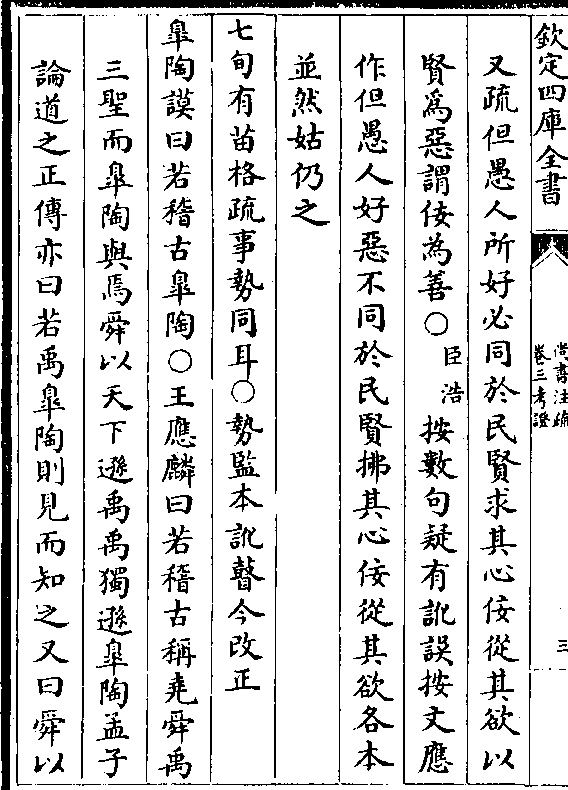 欽定四庫全書
尚書注疏
卷三考證
三
又疏但愚人所好必同於民賢求其心佞從其欲以
賢爲惡謂佞為善〇臣浩按數句疑有訛誤按文應
作但愚人好惡不同於民賢拂其心佞從其欲各本
並然姑仍之
七旬有苗格疏事勢同耳〇勢監本訛瞽今改正
臯陶謨曰若稽古臯陶〇王應麟曰若稽古稱堯舜禹
三聖而臯陶與焉舜以天下遜禹禹獨遜臯陶孟子
論道之正傳亦曰若禹臯陶則見而知之又曰舜以